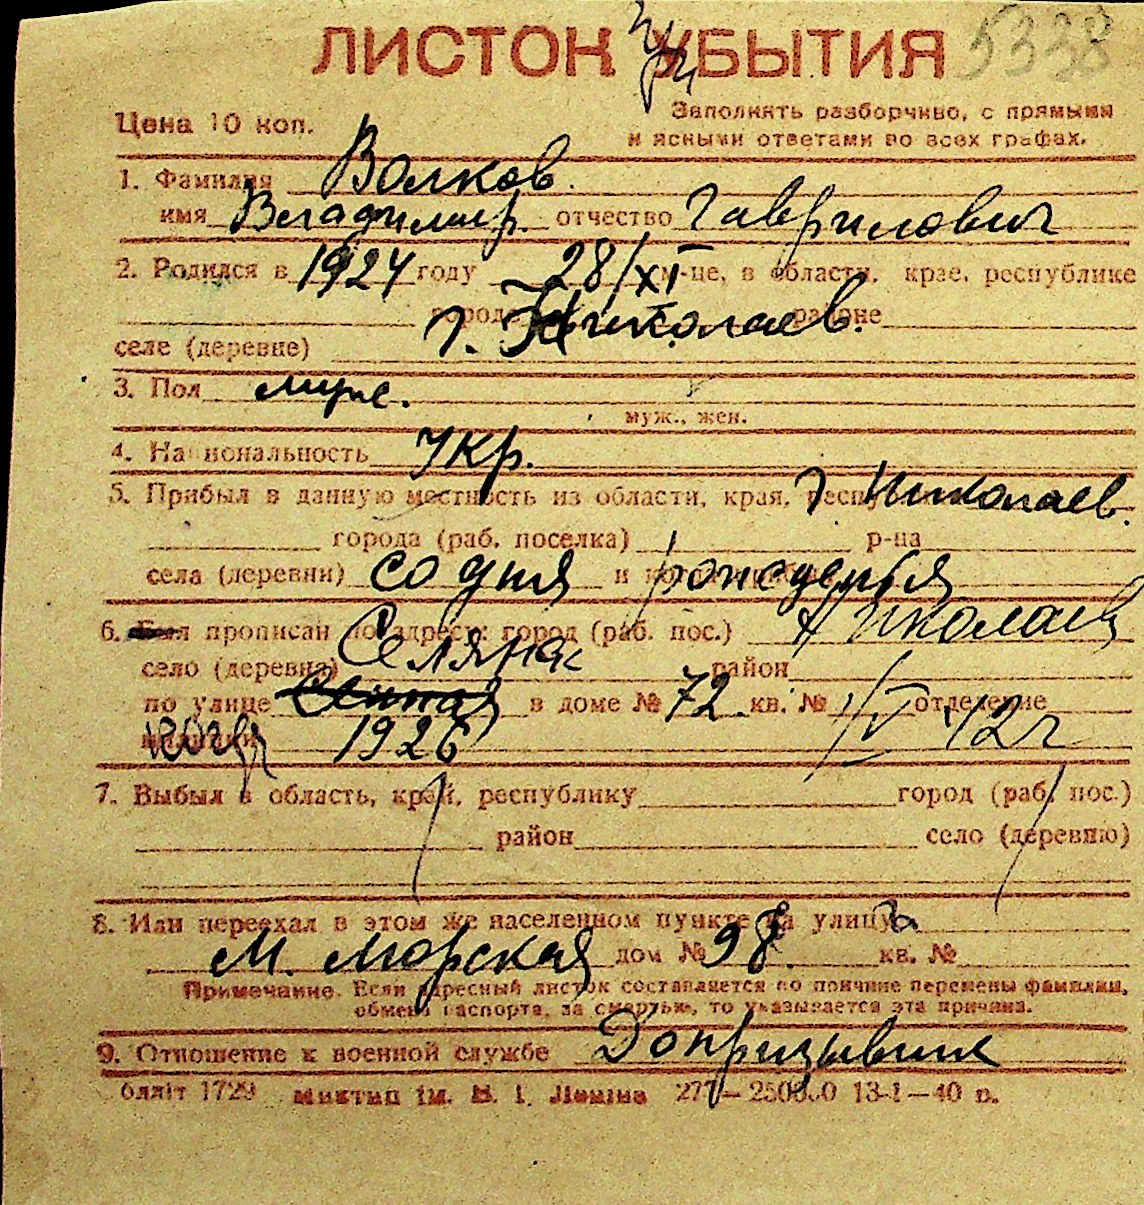 ЛИСТОК УБЫТИЯ 5338
Цена 10 коп.
Заполнять разборчиво, с прямыми
и ясными ответами во всех графах.
1. Фамилия Волков.
имя Владимир. отчество Гаврилович
2. Родился в 1924 году 28/XI м-це, в области, крае, республике
города г. Николаев. районе
селе (деревне)
3. Пол муж.
муж., жен.
4. Национальность Укр.
5. Прибыл в данную местность из области, края, г. Николаев.
города (раб. поселка) р-на
села (деревни) со дня и рождения
6. Был прописан по адресу: город (раб. пос.) Николаев
село (деревня) Селянск район
по улице в доме № 72 кв. № отделение
1926 1/IV 42 г
7. Выбыл в область, край, республику город (раб. пос.)
район село (деревню)
8. Или переехал в этом же населенном пункте на улицу
М. Морская дом № 98 кв. №
Примечание. Если адресный листок составляется по причине перемены фамилии,
обмена паспорта, за смертью, то указывается эта причина.
9. Отношение к военной службе Допризывник
блліт 1729 Миктип ім. В. І. Леніна 277—250000 13-1—40 р.